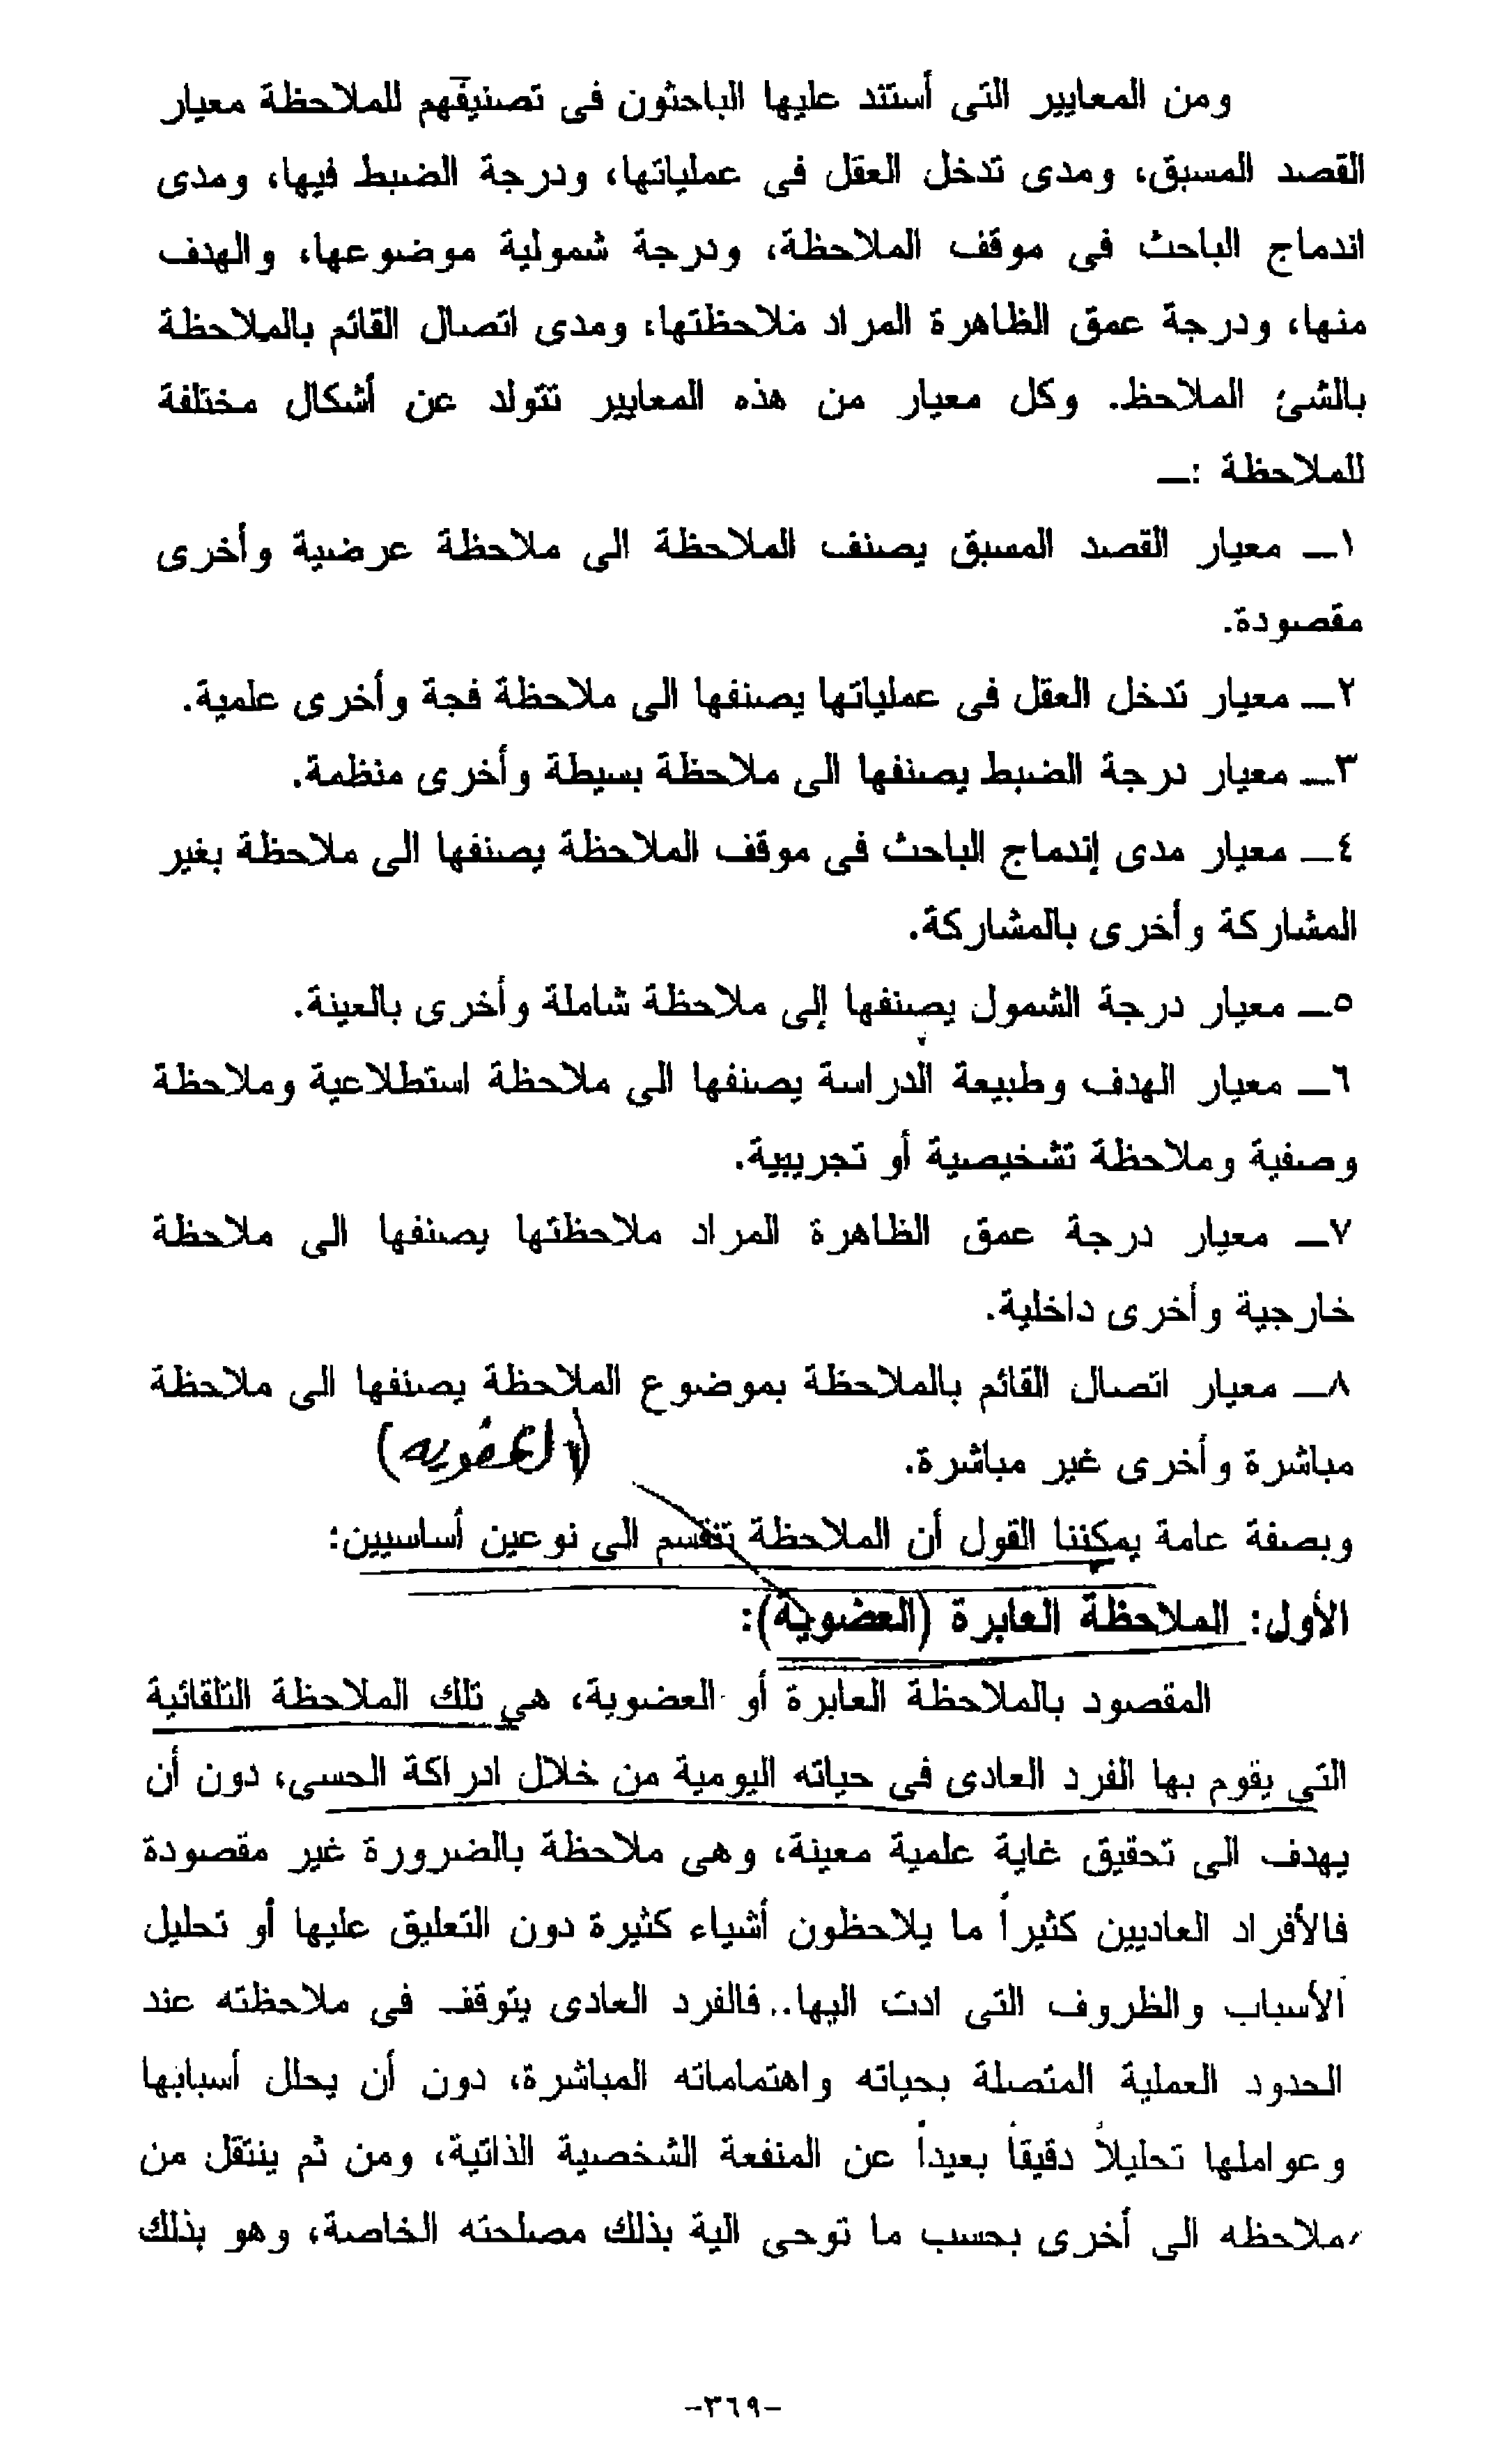 ومن المعايير التى أستند عليها الباحثون فى تصنيفهم للملاحظة معيار
القصد المسبق، ومدى تدخل العقل فى عملياتها، ودرجة الضبط فيها، ومدى
اندماج الباحث فى موقف الملاحظة، ودرجة شمولية موضوعها، والهدف
منها، ودرجة عمق الظاهرة المراد ملاحظتها، ومدى اتصال القائم بالملاحظة
بالشئ الملاحظ. وكل معيار من هذه المعايير تتولد عن أشكال مختلفة
للملاحظة :ـ
١ـ معيار القصد المسبق يصنف الملاحظة الى ملاحظة عرضية وأخرى
مقصودة.
٢ـ معيار تدخل العقل فى عملياتها يصنفها الى ملاحظة فجة وأخرى علمية.
٣ـ معيار درجة الضبط يصنفها الى ملاحظة بسيطة وأخرى منظمة.
٤ـ معيار مدى إندماج الباحث فى موقف الملاحظة يصنفها الى ملاحظة بغير
المشاركة وأخرى بالمشاركة.
٥ـ معيار درجة الشمول يصنفها إلى ملاحظة شاملة وأخرى بالعينة.
٦ـ معيار الهدف وطبيعة الدراسة يصنفها الى ملاحظة استطلاعية وملاحظة
وصفية وملاحظة تشخيصية أو تجريبية.
٧ـ معيار درجة عمق الظاهرة المراد ملاحظتها يصنفها الى ملاحظة
خارجية وأخرى داخلية.
٨ـ معيار اتصال القائم بالملاحظة بموضوع الملاحظة يصنفها الى ملاحظة
مباشرة وأخرى غير مباشرة.
(العفويه)
وبصفة عامة يمكننا القول أن الملاحظة تنقسم الى نوعين أساسيين:
الأول: الملاحظة العابرة (العضوية):
المقصود بالملاحظة العابرة أو العضوية، هي تلك الملاحظة التلقائية
التي يقوم بها الفرد العادى فى حياته اليومية من خلال ادراكة الحسى، دون أن
يهدف الى تحقيق غاية علمية معينة، وهى ملاحظة بالضرورة غير مقصودة
فالأفراد العاديين كثيراً ما يلاحظون أشياء كثيرة دون التعليق عليها أو تحليل
الأسباب والظروف التى ادت اليها.. فالفرد العادى يتوقف فى ملاحظته عند
الحدود العملية المتصلة بحياته واهتماماته المباشرة، دون أن يحلل أسبابها
وعواملها تحليلاً دقيقاً بعيداً عن المنفعة الشخصية الذاتية، ومن ثم ينتقل من
ملاحظه الى أخرى بحسب ما توحى الية بذلك مصلحته الخاصة، وهو بذلك
-٣٦٩-